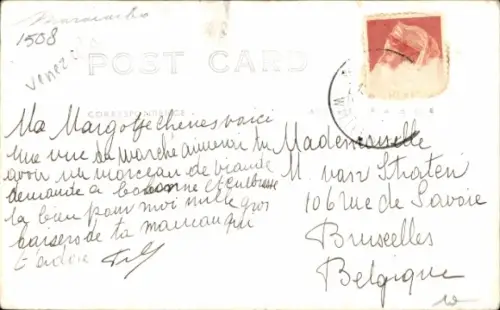 Maracaibo
1508
Venez
POST CARD
CORRESPONDENCE
Ma Margot chérie voici
une vue du marché
avoir un morceau de viande
demande à bonne et embrasse
la bien pour moi mille gros
baisers de ta maman qui
t'adore
Mademoiselle
M. van Straten
106 rue de Savoie
Bruxelles
Belgique